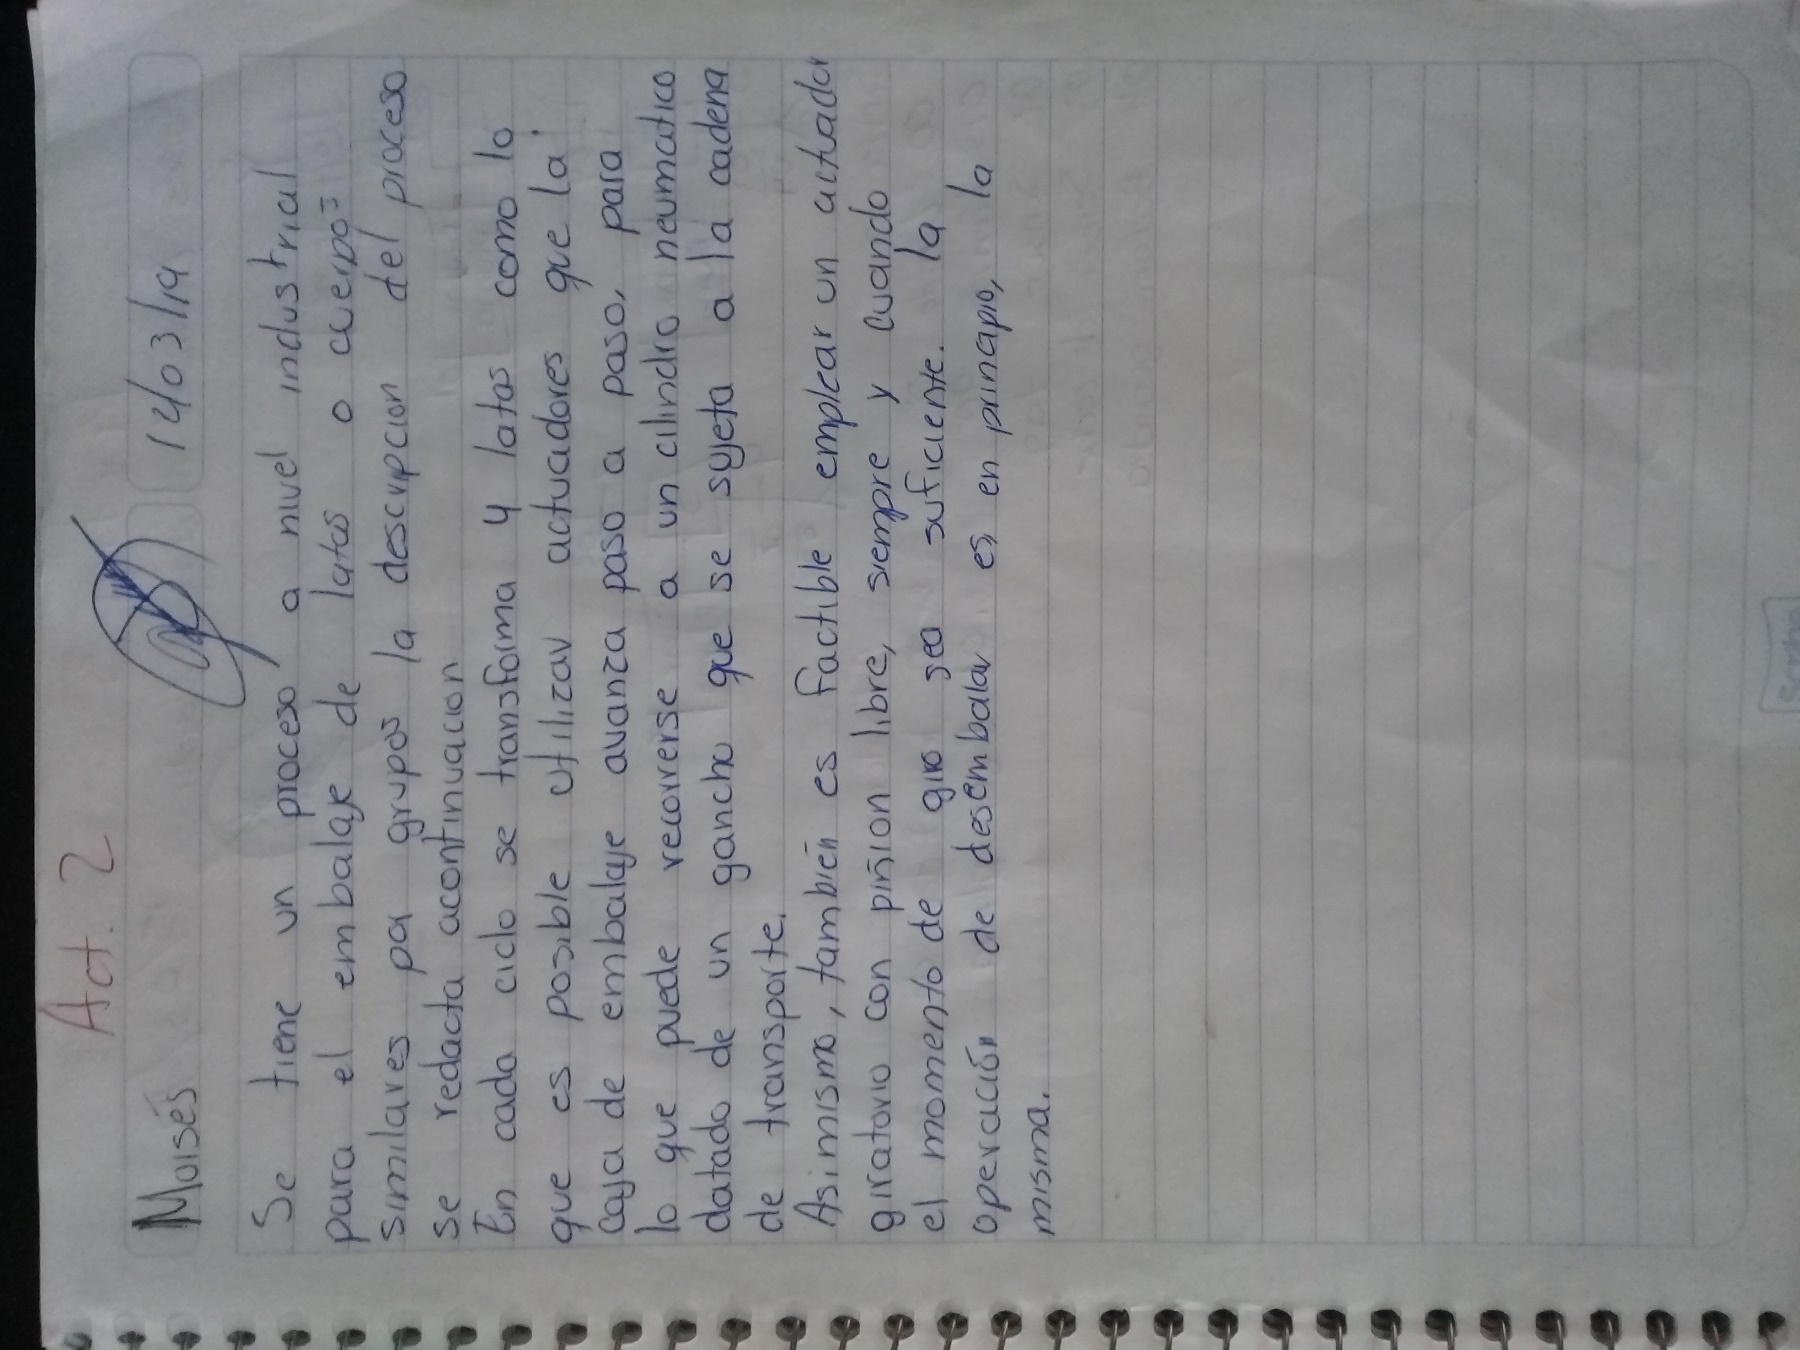 Act. 2
Moisés 14/03/19
Se tiene un proceso a nivel industrial
para el embalaje de latas o cuerpos
similares por grupos la descripcion del proceso
se redacta acontinuacion
En cada ciclo se transforma 4 latas como lo
que es posible utilizar actuadores que la
caja de embalaje avanza paso a paso, para
lo que puede recorrerse a un cilindro neumatico
datado de un gancho que se sujeta a la cadena
de transporte.
Asimismo, también es factible emplear un actuador
giratorio con piñion libre, siempre y cuando
el momento de giro sea suficiente. la
operación de desembalar es, en principio, la
misma.